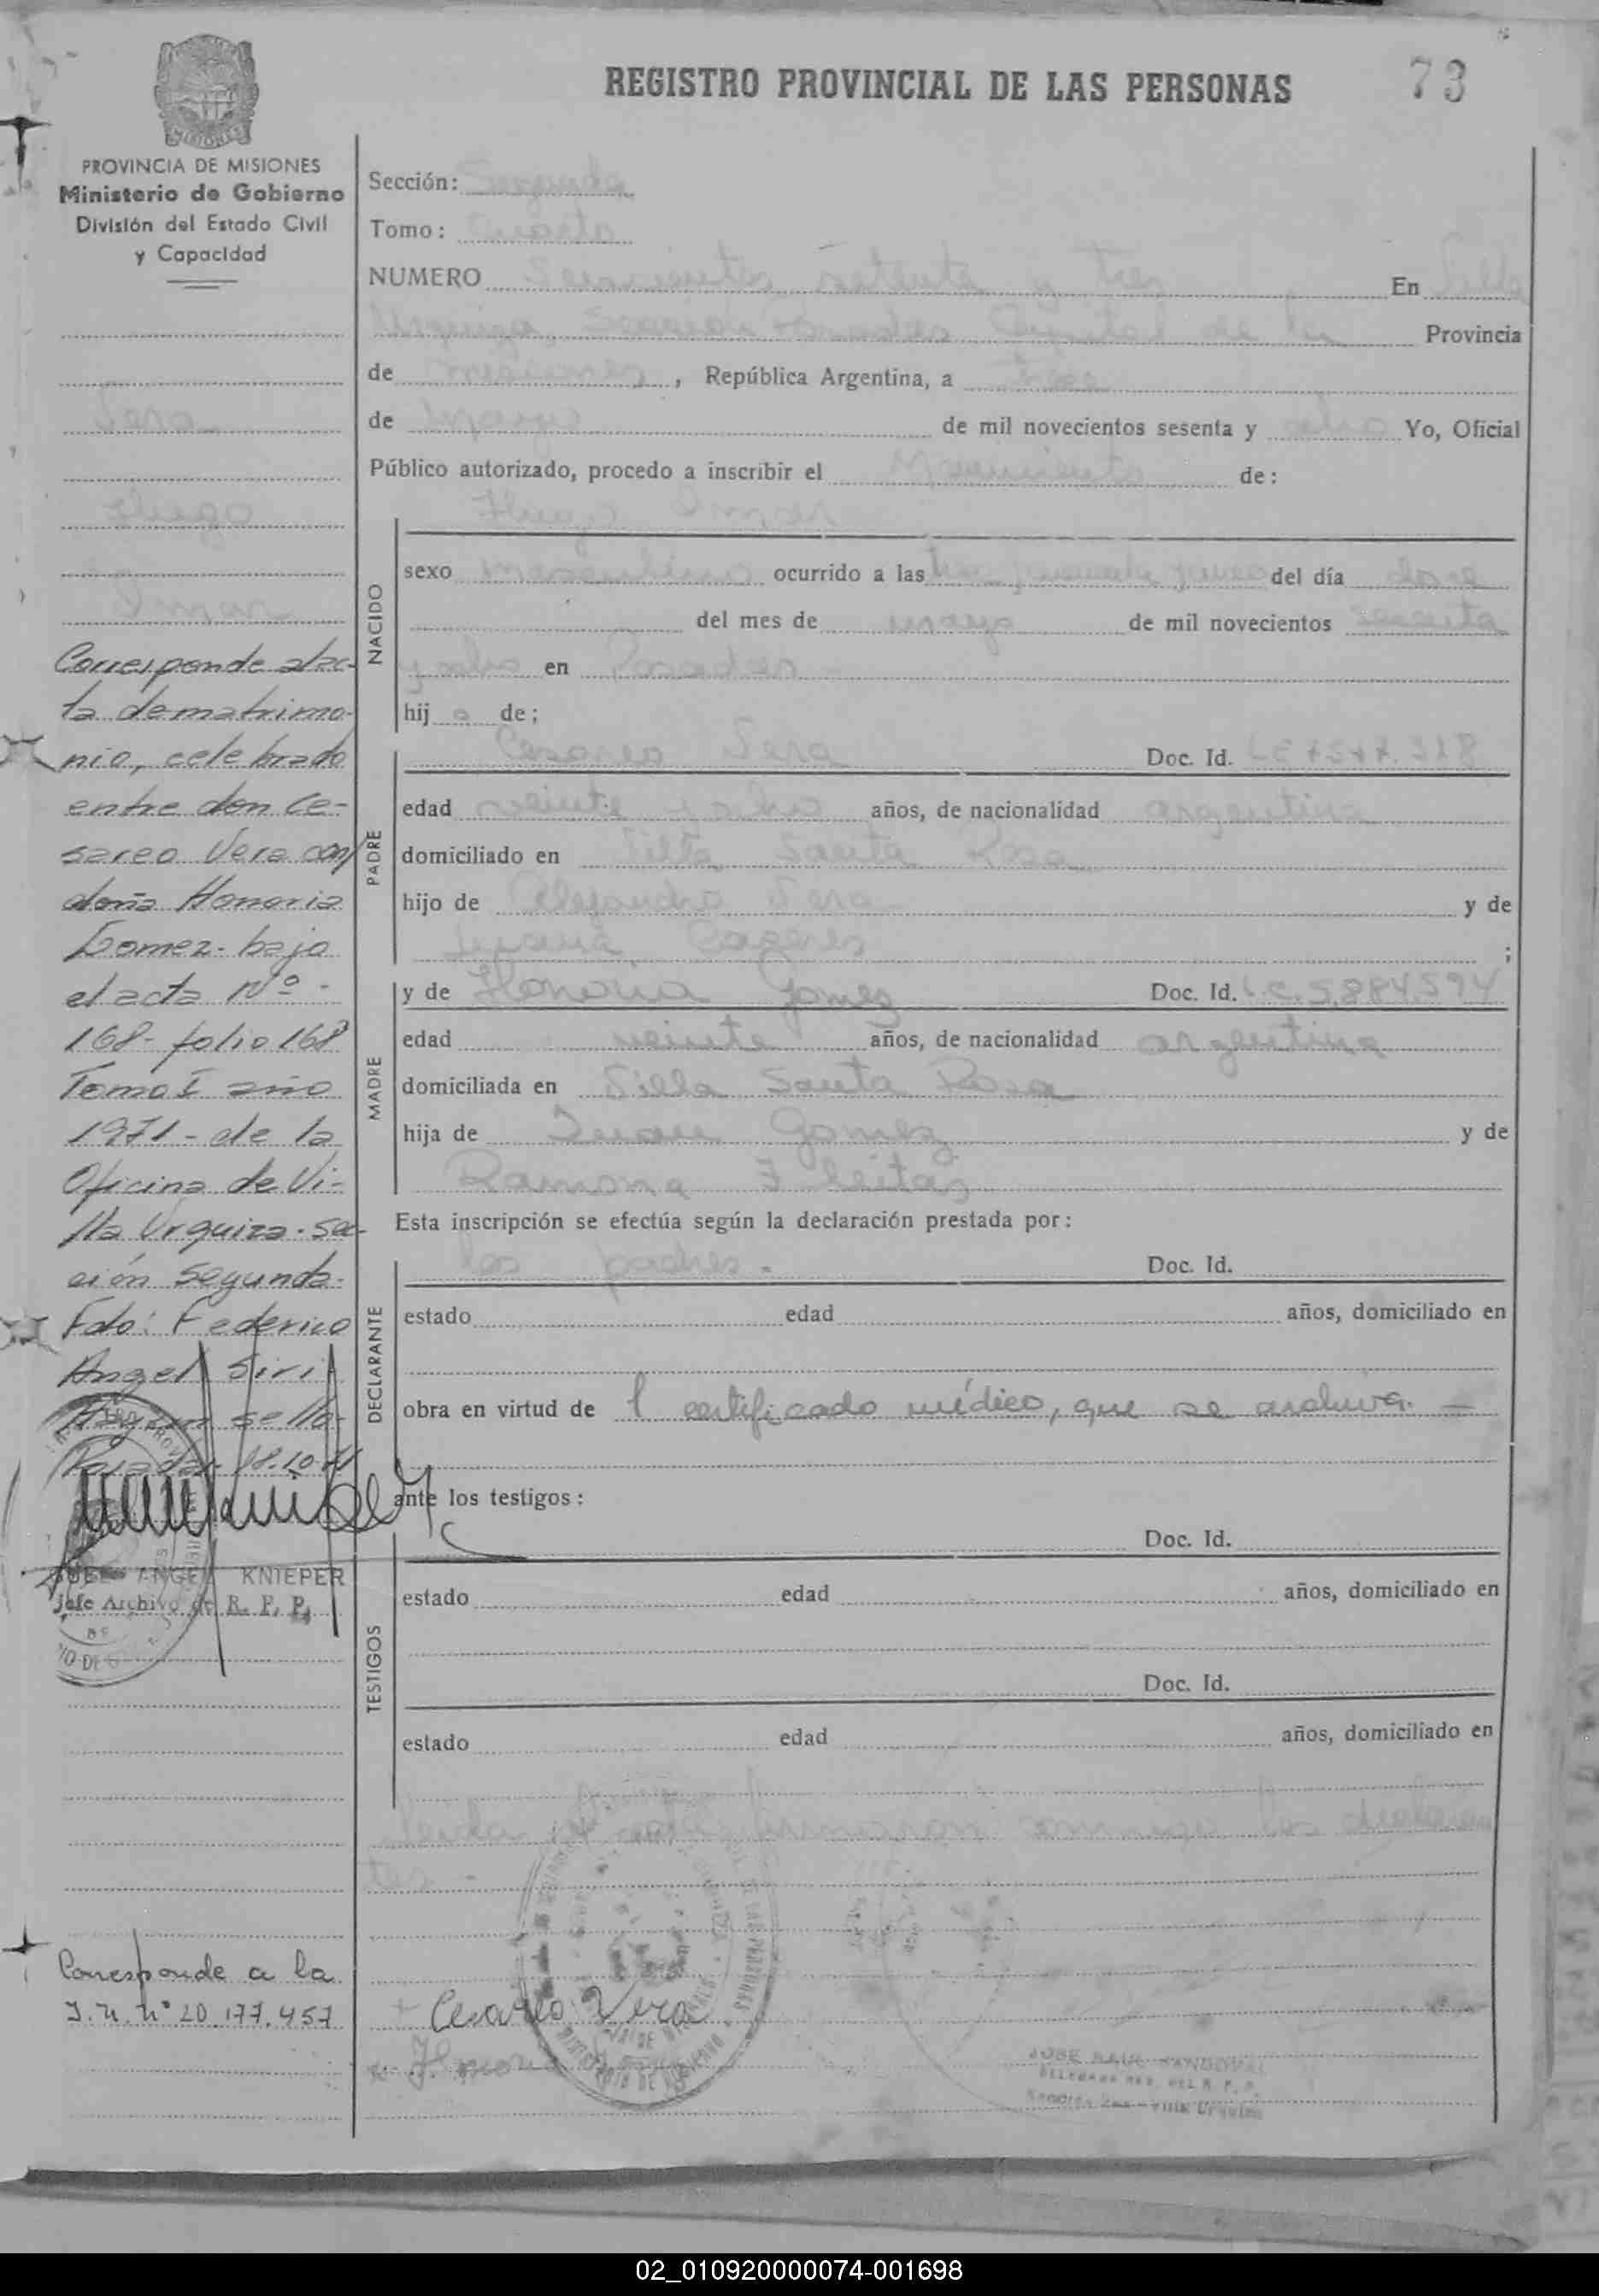 REGISTRO PROVINCIAL DE LAS PERSONAS
73
MISIONES
PROVINCIA DE MISIONES
Ministerio de Gobierno
División del Estado Civil
y Capacidad
Vera
Hugo
Omar
Corresponde al ac-
ta de matrimo-
nio, celebrado
entre don Ce-
sareo Vera con
doña Honoria
Gomez - bajo
el acta Nº -
168 - folio 168
Tomo I año
1971 - de la
Oficina de Vi-
lla Urquiza - sec-
ción segunda -
Fdo: Federico
Angel Siri
sello
Posadas 18.10.71
ANGEL KNIEPER
Jefe Archivo de R. P. P.
Corresponde a la
I. N. nº 20.177.457
Sección: Segunda
Tomo: Cuarto
NUMERO Seiscientos setenta y tres En Villa
Urquiza, Sección Posadas Capital de la Provincia
de Misiones, República Argentina, a
de mayo de mil novecientos sesenta y ocho Yo, Oficial
Público autorizado, procedo a inscribir el Nacimiento de:
NACIDO
Hugo Omar
sexo masculino ocurrido a las del día doce
del mes de mayo de mil novecientos sesenta
y ocho en Posadas -
hijo de;
PADRE
Cesareo Vera Doc. Id.
edad veinte y ocho años, de nacionalidad argentina
domiciliado en Villa Santa Rosa
hijo de Alejandro Vera y de
Juana Caceres ;
MADRE
y de Honoria Gomez Doc. Id. L.C. 5.884.594
edad veinte años, de nacionalidad argentina
domiciliada en Villa Santa Rosa
hija de Gomez y de
Ramona Fleitas
Esta inscripción se efectúa según la declaración prestada por:
DECLARANTE
los padres - Doc. Id.
estado edad años, domiciliado en
obra en virtud de l certificado médico, que se archiva. -
ante los testigos:
TESTIGOS
Doc. Id.
estado edad años, domiciliado en
Doc. Id.
estado edad años, domiciliado en
Leida el acta firmaron conmigo los declaran
tes -
Cesareo Vera
JOSE RAUL SANDOVAL
Sección 2da - Villa Urquiza
02_010920000074-001698